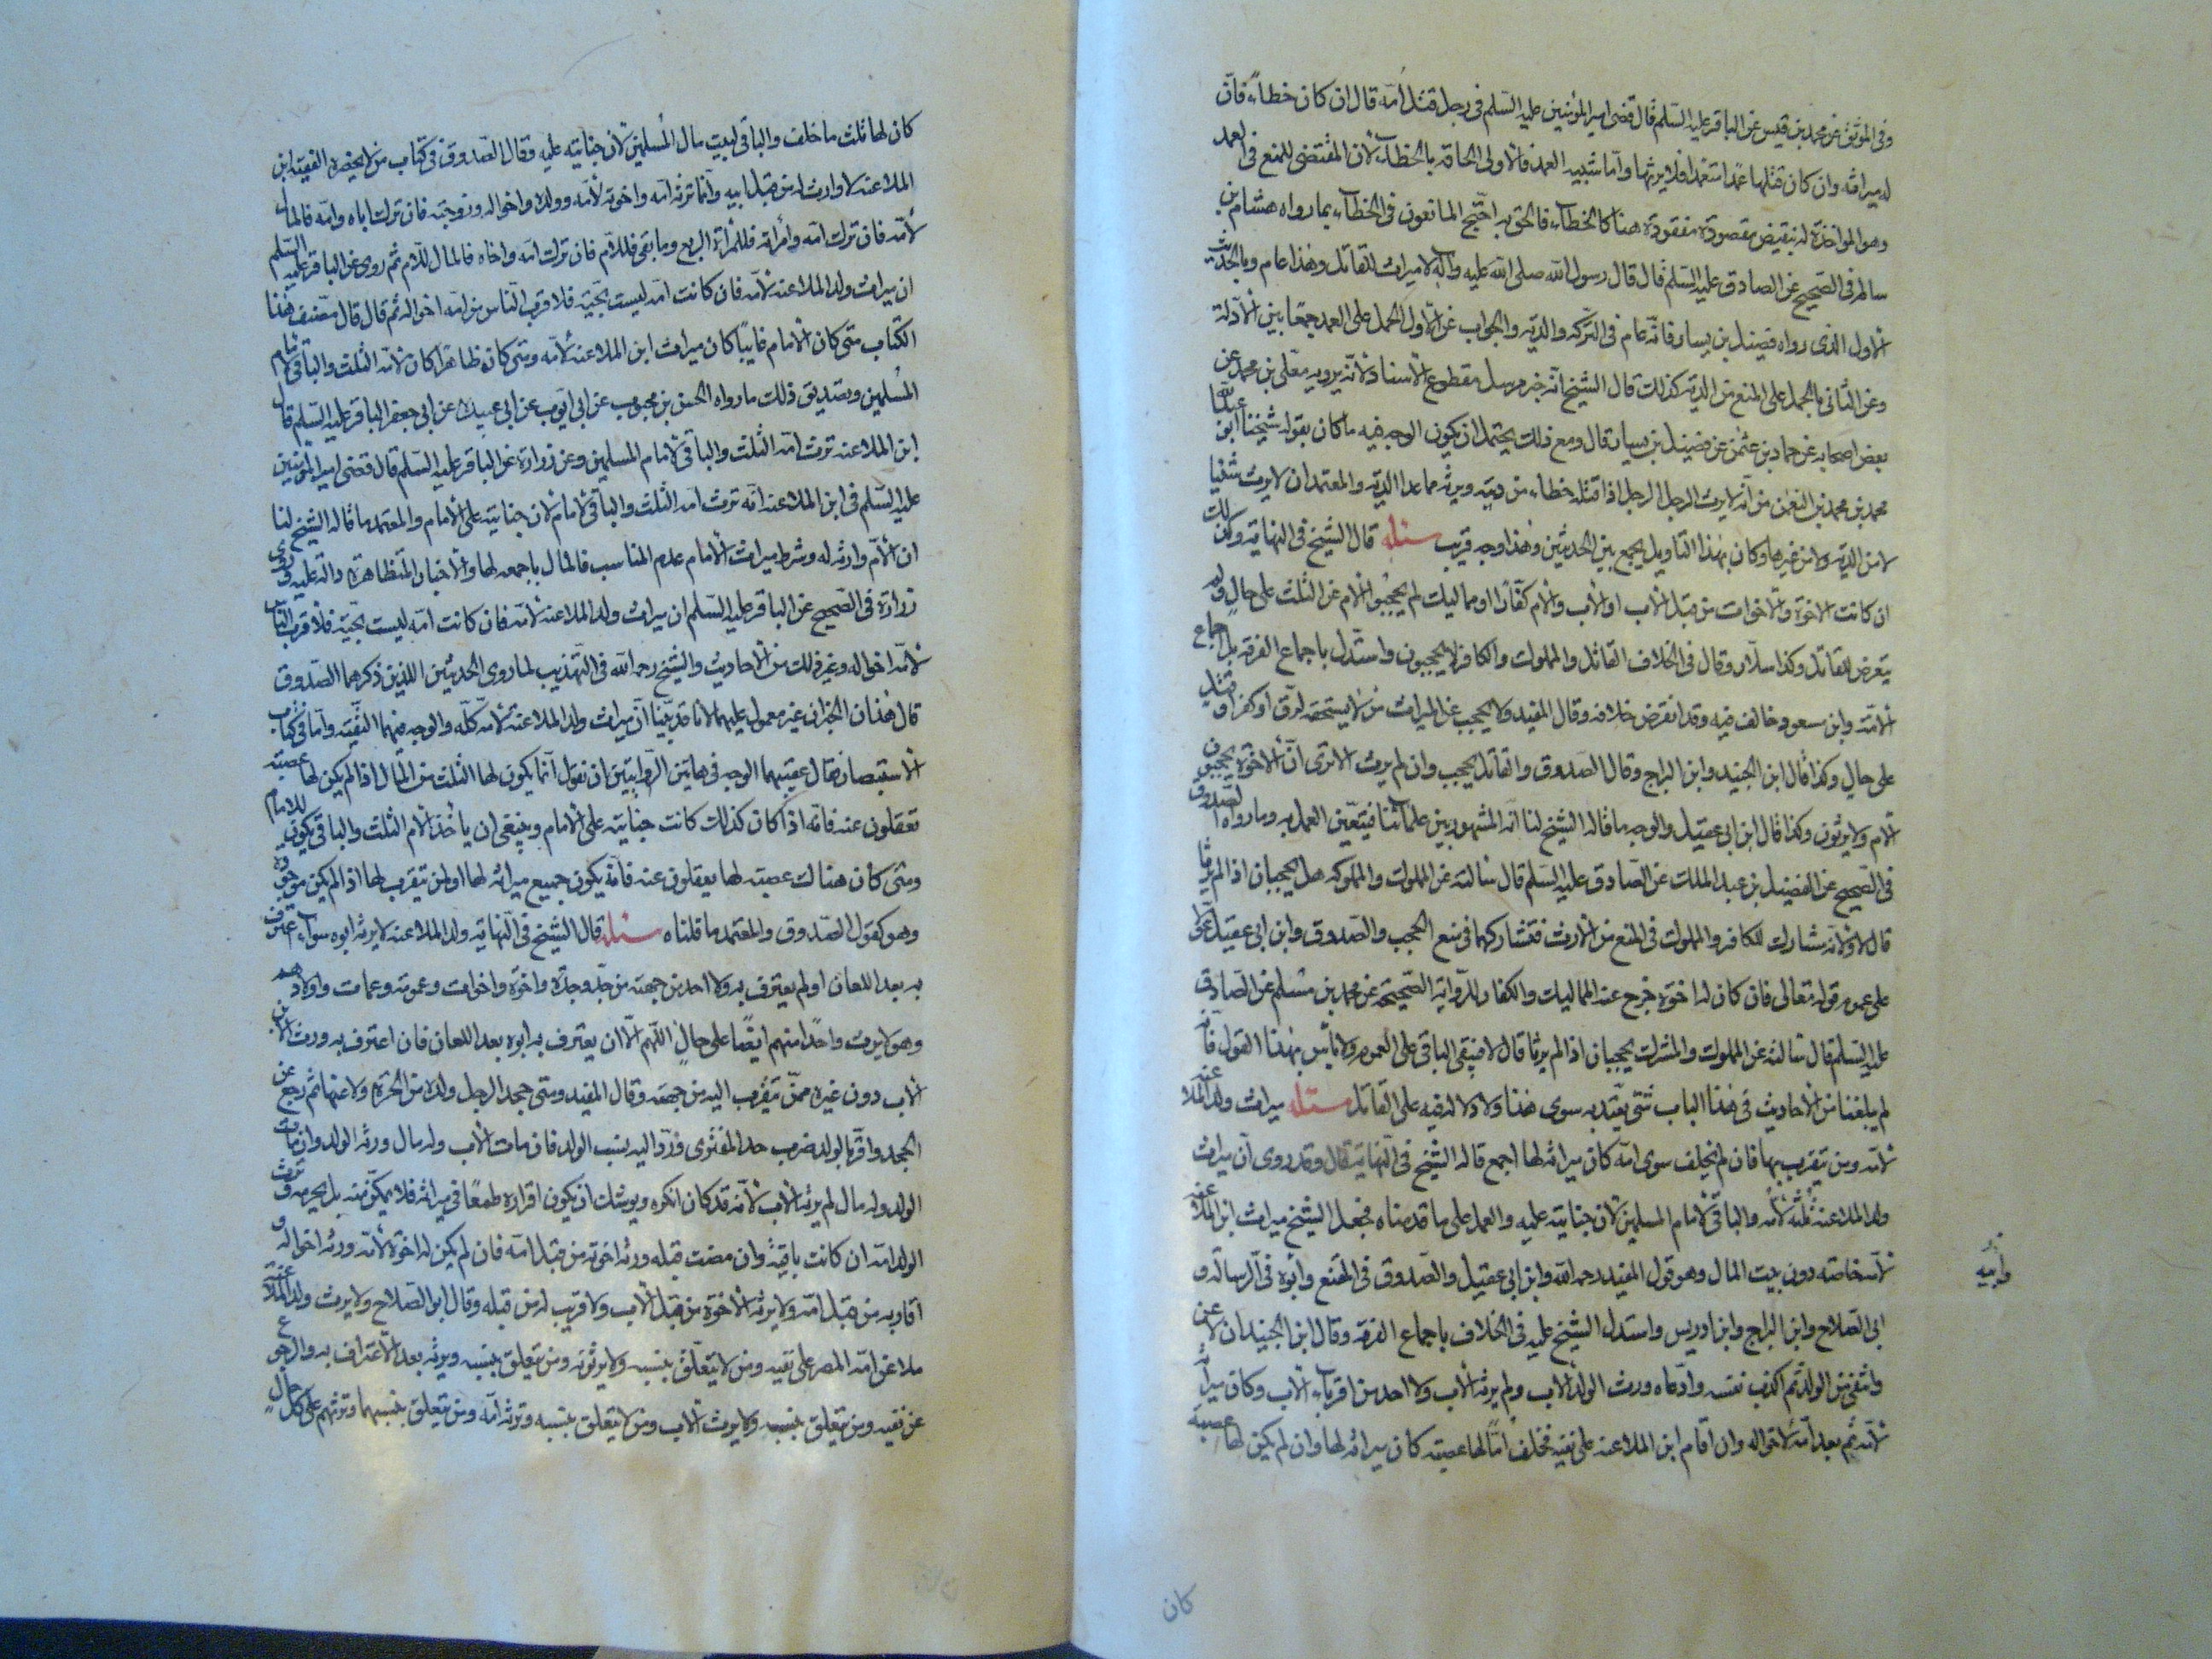 وفى الموثق عن محمد بن قيس عن الباقر عليه السلم قال قضى امير المؤمنين عليه السلم فى رجل قتل امه قال ان كان خطاء فان
له ميراثه وان كان قتلها عمدا متعمدا فلا يرثها واما شبيه العمد فالاولى الحاقه بالخطاء لان المقتضى للمنع فى العمد
وهو المواخذة له بنقيض مقصوده مفقودة هنا كالخطاء فالحق به احتج المانعون فى الخطاء بما رواه هشام بن
سالم فى الصحيح عن الصادق عليه السلم قال قال رسول الله صلى الله عليه وآله لا ميراث للقاتل وهذا عام وبالحديث
الاول الذى رواه فضيل بن يسار فانه عام فى التركه والديه والجواب عن الاول الحمل على العمد جمعا بين الادلة
وعن الثانى بالحمل على المنع من الدية كذلك قال الشيخ انه خبر مرسل مقطوع الاسناد لانه يرويه معلى بن محمد عن
بعض اصحابه عن حماد بن عثمن عن فضيل بن يسار قال ومع ذلك يحتمل ان يكون الوجه فيه ما كان يقوله شيخنا ابو عبد الله
محمد بن محمد بن النعمن من انه لا يرث الرجل الرجل اذا قتله خطاء من ديته ويرثه مما عدا الدية والمعتمد ان لا يرث شيئا
لا من الدية ولا من غيرها وكان بهذا التاويل يجمع بين الحديثين وهذا وجه قريب مسئلة قال الشيخ فى النهاية وكذلك
ان كانت الاخوة والاخوات من قبل الاب او الاب والام كفارا او مماليك لم يحجبوا الام عن الثلث على حال ولم
يتعرض للقاتل وكذا سلار وقال فى الخلاف القاتل والمملوك والكافر لا يحجبون واستدل باجماع الفرقة بل اجماع
الامة وابن مسعود خالف فيه وقد انقرض خلافه وقال المفيد ولا يحجب عن الميراث من لا يستحقه لرق او كفر او قتل
على حال وكذا قال ابن الجنيد وابن البراج وقال الصدوق والقاتل يحجب وان لم يرث الا ترى ان الاخوة يحجبون
الام ولا يرثون وكذا قال ابن ابى عقيل والوجه ما قاله الشيخ لنا انه المشهور بين علمائنا فيتعين العمل به وما رواه الصدوق
فى الصحيح عن الفضيل بن عبد الملك عن الصادق عليه السلم قال سالته عن المملوك والمملوكة هل يحجبان اذا لم يرثا
قال لا ولانه مشارك للكافر والمملوك فى المنع من الارث فتشاركهما فى منع الحجب والصدوق وابن ابى عقيل عولا
على عموم قوله تعالى فان كان له اخوة خرج عنه المماليك والكفار للرواية الصحيحة عن محمد بن مسلم عن الصادق
عليه السلم قال سالته عن المملوك والمشرك يحجبان اذا لم يرثا قال لا فيبقى الباقى على العموم ولا باس بهذا القول فانه
لم يبلغنا من الاحاديث فى هذا الباب شئ يعتد به سوى هذا ولا دلالة فيه على القاتل مسئلة ميراث ولد الملاعنه
لامه ومن يتقرب بها فان لم يخلف سوى امه كان ميراثه لها اجمع قاله الشيخ فى النهاية قال وقد روى ان ميراث
ولد الملاعنة ثلثه لامه والباقى لامام المسلمين لان جنايته عليه والعمل على ما قدمناه فجعل الشيخ ميراث ابن الملاعنه
لامه خاصه دون بيت المال وهو قول المفيد رحمه الله وابن ابى عقيل والصدوق فى المقنع وابوه فى الرسالة و
ابى الصلاح وابن البراج وابن ادريس واستدل الشيخ عليه فى الخلاف باجماع الفرقة وقال ابن الجنيد ان لاعن
وانتفى من الولد ثم اكذب نفسه وادعاه ورث الولد الاب ولم يرثه الاب ولا احد من اقرباء الاب وكان ميراثه
لامه ثم بعد امه لاخواله وان اقام ابن الملاعنه على نفيه فخلف اما لها عصبة كان ميراثه لها وان لم يكن لها عصبة
وابيه
كان
كان لها ثلث ما خلف والباقى لبيت مال المسلمين لان جنايته عليه وقال الصدوق فى كتاب من لا يحضره الفقيه ابن
الملاعنه لا وارث له من قبل ابيه وانما ترثه امه واخوته لامه وولده واخواله وزوجته فان ترك اباه وامه فالمال
لامه فان ترك امه وامراته فللمراة الربع وما بقى فللام فان ترك امه واخاه فالمال للام ثم روى عن الباقر عليه السلم
ان ميراث ولد الملاعنه لامه فان كانت امه ليست بحية فلاقرب الناس من امه اخواله ثم قال قال مصنف هذا
الكتاب متى كان الامام غايبا كان ميراث ابن الملاعنه لامه ومتى كان ظاهرا كان لامه الثلث والباقى لامام
المسلمين وتصديق ذلك ما رواه الحسن بن محبوب عن ابى ايوب عن ابى عبيدة عن ابى جعفر الباقر عليه السلم قال
ابن الملاعنه ترث امه الثلث والباقى لامام المسلمين وعن زرارة عن الباقر عليه السلم قال قضى امير المؤمنين
عليه السلم فى ابن الملاعنه انه ترث امه الثلث والباقى للامام لان جنايته على الامام والمعتمد ما قاله الشيخ لنا
ان الام وارثه له وشرط ميراث الامام عدم المناسب فالمال باجمعه لها والاخبار المتظاهرة دالة عليه وروى
زرارة فى الصحيح عن الباقر عليه السلم ان ميراث ولد الملاعنه لامه فان كانت امه ليست بحية فلاقرب الناس
لامه اخواله وغير ذلك من الاحاديث والشيخ رحمه الله فى التهذيب لما روى الحديثين اللذين ذكرهما الصدوق
قال هذان الخبران غير معمول عليهما لانا قد بينا ان ميراث ولد الملاعنة لامه كله والوجه فيهما التقية واما فى كتاب
الاستبصار فقال عقيبهما الوجه فى هاتين الروايتين ان نقول انما يكون لها الثلث من المال اذا لم يكن لها عصبة
تعقلون عنه فانه اذا كان كذلك كانت جنايته على الامام وينبغى ان ياخذ الام الثلث والباقى يكون للامام
ومتى كان هناك عصبة لها يعقلون عنه فانه يكون جميع ميراثه لها او لمن يتقرب لها اذا لم يكن موجودة
وهو كقول الصدوق والمعتمد ما قلناه مسئلة قال الشيخ فى النهاية ولد الملاعنه لا يرثه ابوه سواء اعترف
به بعد اللعان او لم يعترف به ولا احد من جهته من جد وجدة واخوة واخوات وعمومة وعمات واولادهم
وهو لا يرث واحدا منهم ايضا على حال اللهم الا ان يعترف به ابوه بعد اللعان فان اعترف به ورث الابن
الاب دون غيره ممن يتقرب اليه من جهته وقال المفيد ومتى جحد الرجل ولده من الحرة ولاعنها ثم رجع عن
الجحد واقر بالولد ضرب حد المفترى ورد اليه نسب الولد فان مات الاب وله مال ورثه الولد وان مات
الولد وله مال لم يرثه الاب لانه قد كان انكره ويوشك ان يكون اقراره طمعا فى ميراثه فلا يمكن منه بل يحرمه وترث
الولد امه ان كانت باقية وان مضت قبله ورثه اخوته من قبل امه فان لم يكن له اخوة لامه ورثه اخواله و
اقاربه من قبل امه ولا يرثه الاخوة من قبل الاب ولا قريب له من قبله وقال ابو الصلاح ولا يرث ولد الملاعنة
ملاعن امه المصر على نفيه ومن لا يتعلق بنسبه ولا يرثونه ومن يتعلق بنسبه ويرثه بعد الاعتراف به والرجوع
عن نفيه ومن يتعلق بنسبه ولا يرث الاب ومن لا يتعلق بنسبه وترثه امه ومن يتعلق بنسبهما وترثهم على كل حال